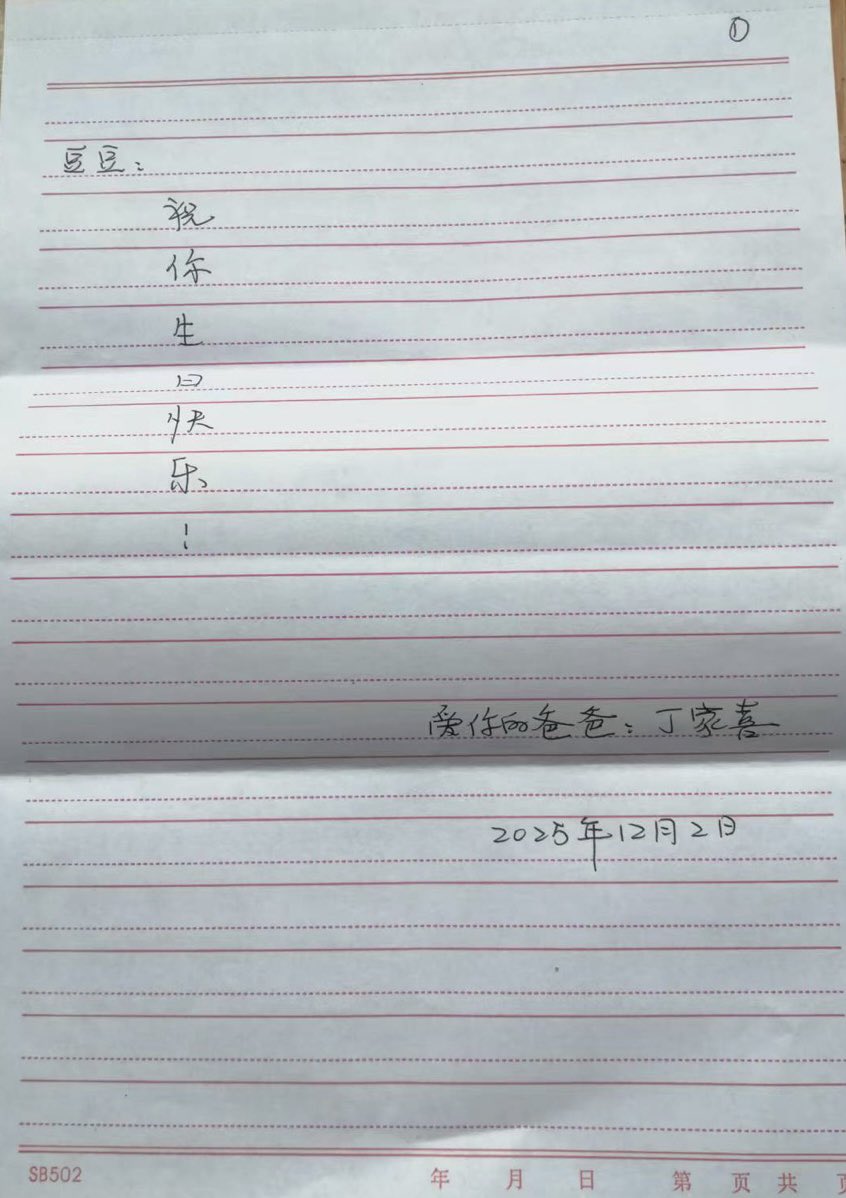 ①
豆豆：
祝
你
生
日
快
乐
！
爱你的爸爸：丁家喜
2025年12月2日
SB502 年 月 日 第 页 共 页